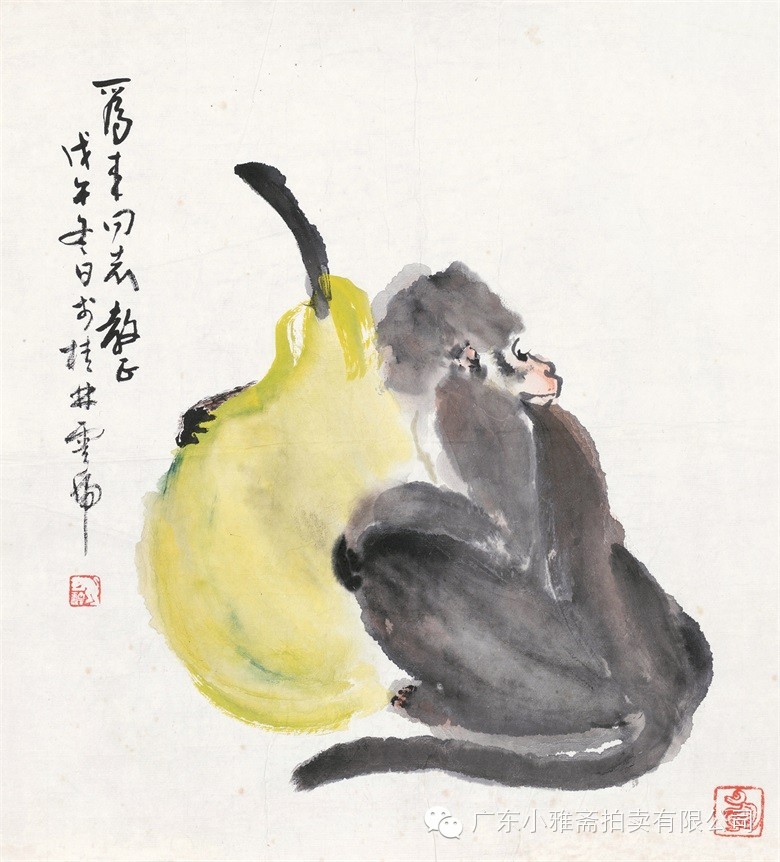 同志教正
戊午冬日於桂林雲
广东小雅斋拍卖有限公司